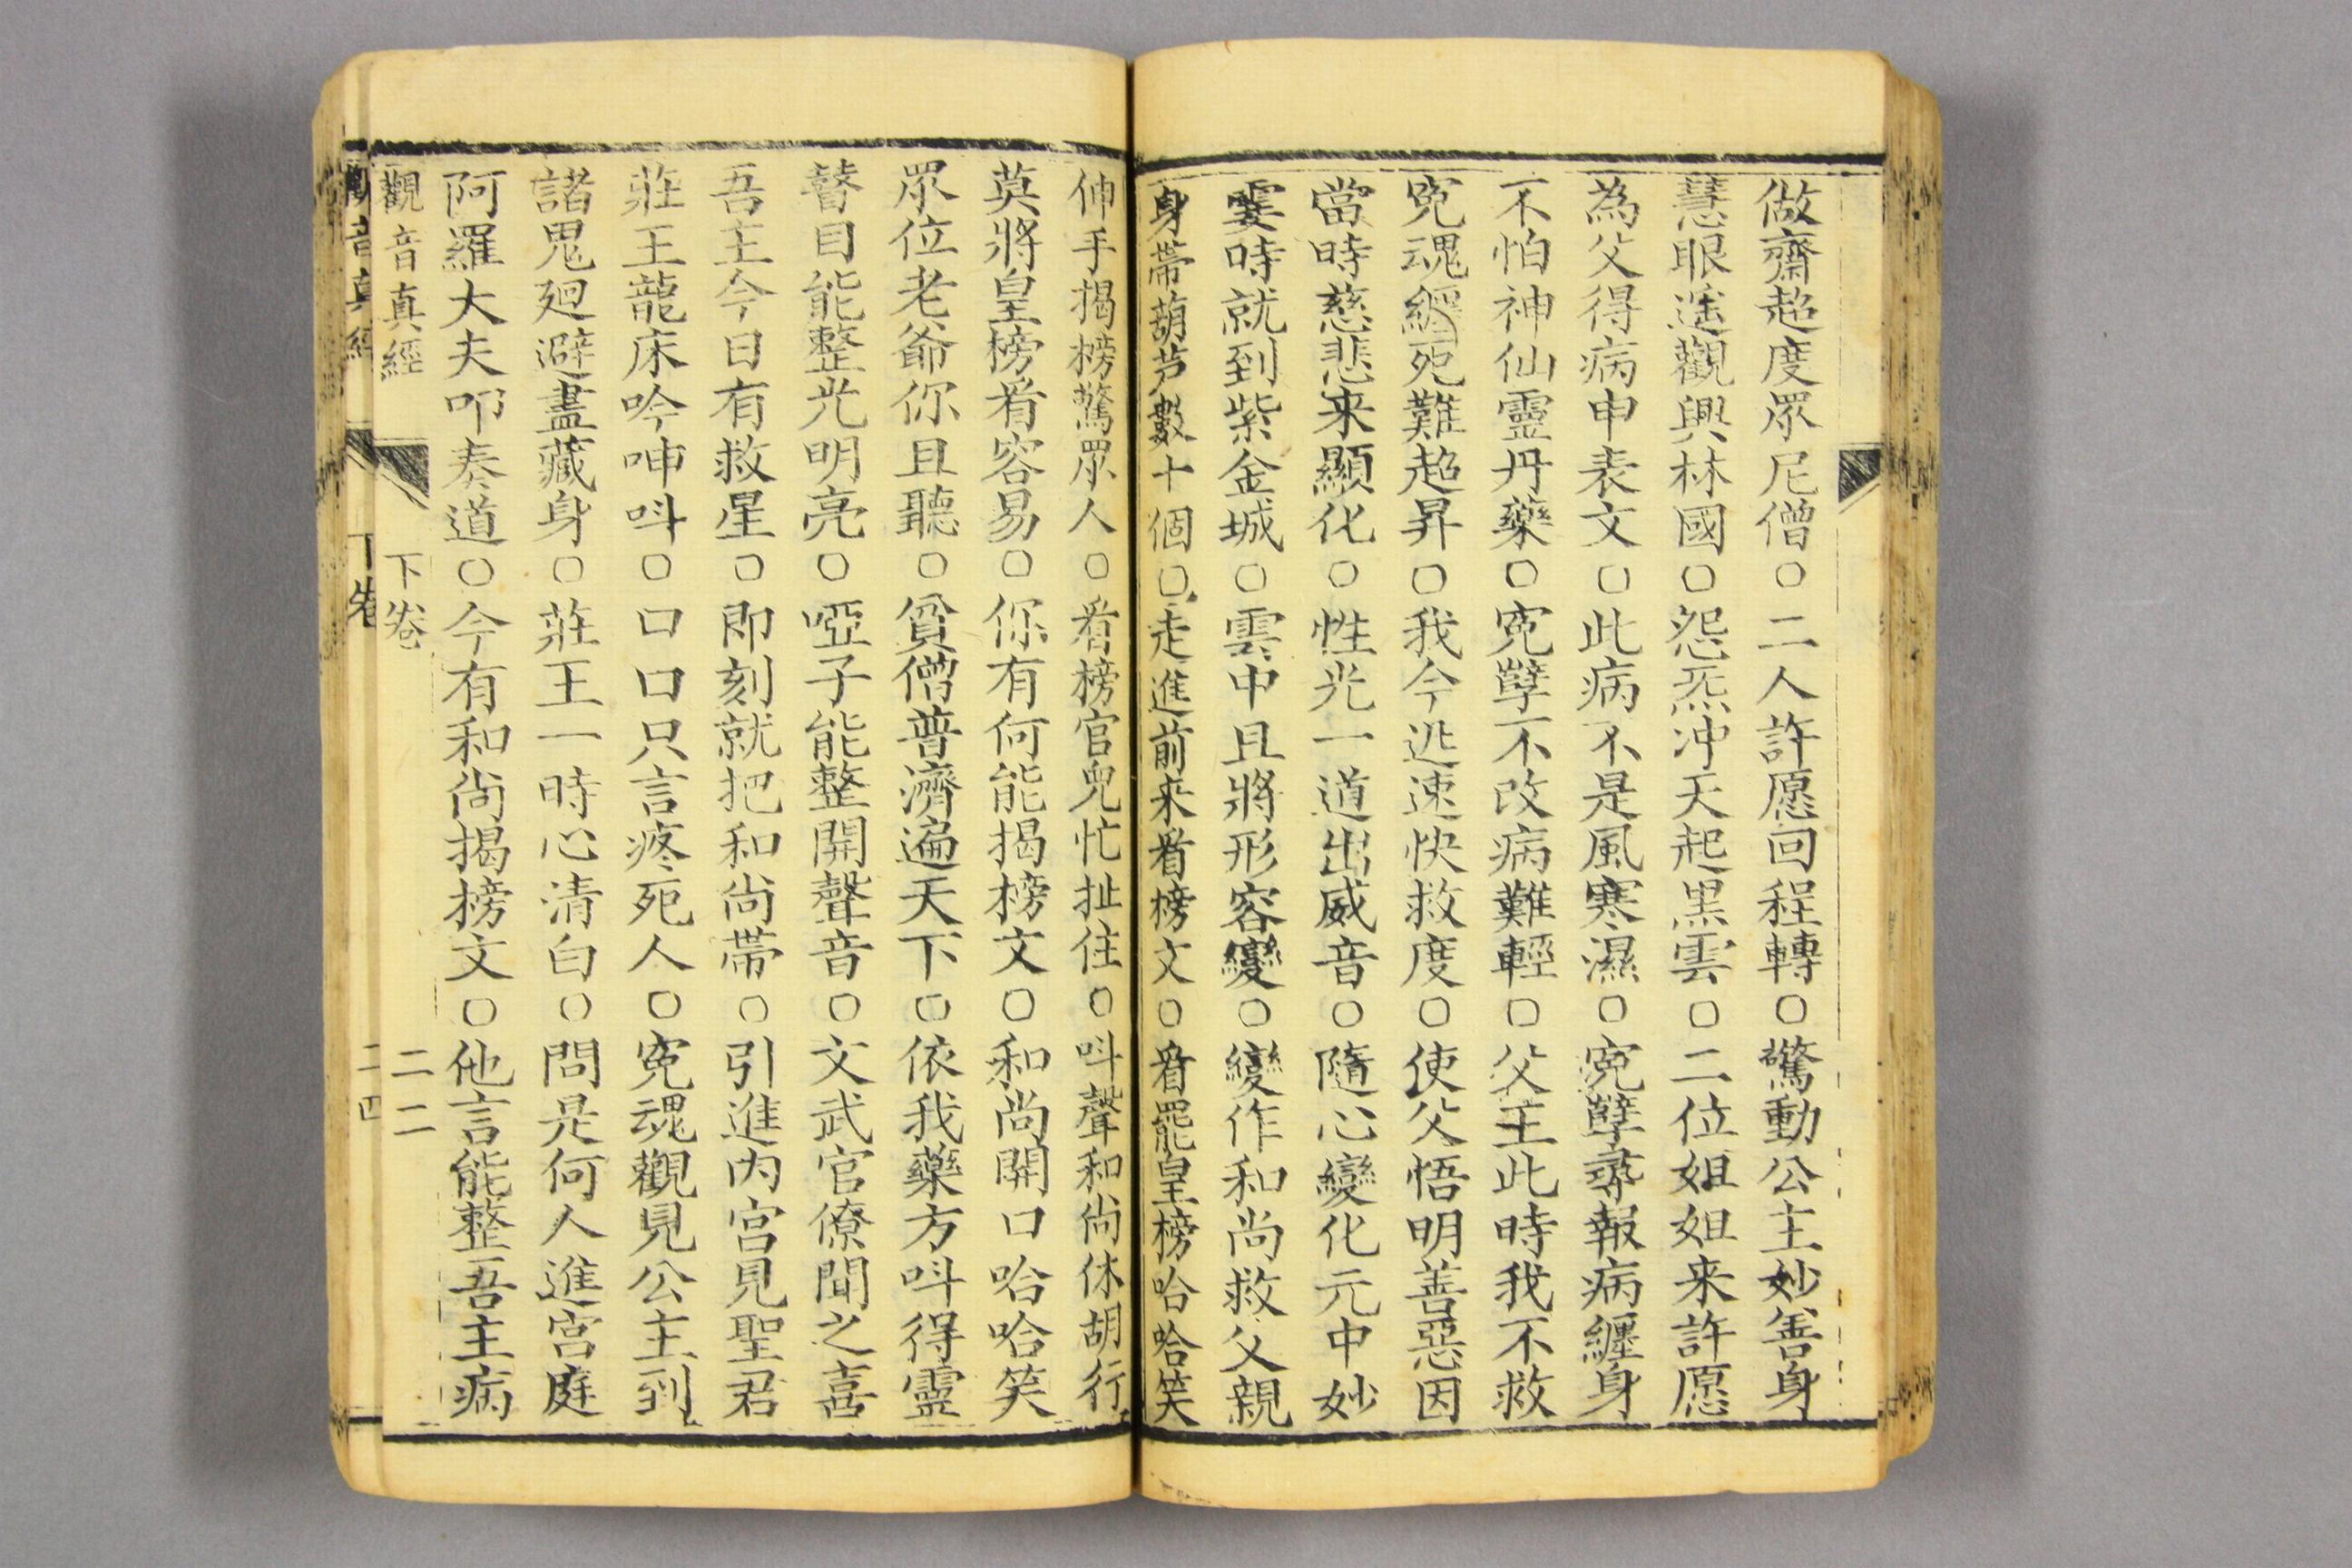 做齋超度眾尼僧○二人許愿回程轉○驚動公主妙善身
慧眼遥觀興林國○怨炁冲天起黑雲○二位姐姐来許愿
為父得病申表文○此病不是風寒濕○寃孽尋報病纏身
不怕神仙靈丹藥○寃孽不改病難輕○父王此時我不救
寃魂纒死難超昇○我今迯速快救度○使父悟明善惡因
當時慈悲来顯化○性光一道出威音○隨心變化元中妙
霎時就到紫金城○雲中且將形容變○變作和尚救父親
身帶葫芦數十個○走進前来看榜文○看罷皇榜哈哈笑
伸手揭榜驚眾人○看榜官兒忙扯住○呌聲和尚休胡行
莫將皇榜看容易○你有何能揭榜文○和尚開口哈哈笑
眾位老爺你且聽○貧僧普濟遍天下○依我藥方呌得靈
瞽目能整光明亮○啞子能整開聲音○文武官僚聞之喜
吾主今日有救星○即刻就把和尚帶○引進內宫見聖君
莊王龍床吟呻呌○口口只言疼死人○寃魂觀見公主到
諸鬼廻避盡藏身○莊王一時心清白○問是何人進宫庭
阿羅大夫叩奏道○今有和尚揭榜文○他言能整吾主病
觀音真經 下卷 二二
觀音真經 下卷 二四